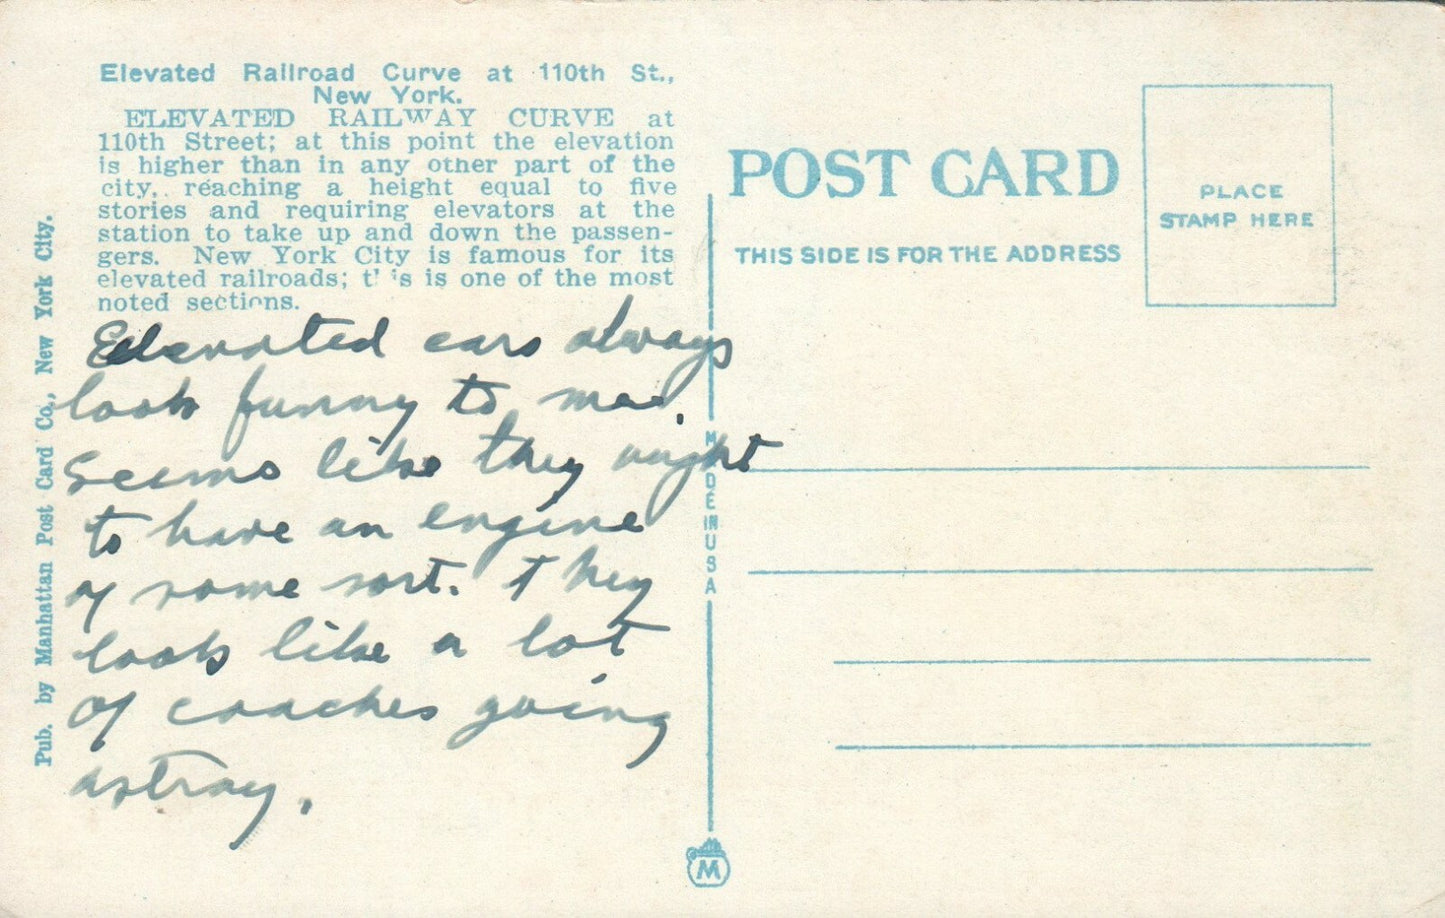 Elevated Railroad Curve at 110th St.,
New York.
ELEVATED RAILWAY CURVE at
110th Street; at this point the elevation
is higher than in any other part of the
city, reaching a height equal to five
stories and requiring elevators at the
station to take up and down the passen-
gers. New York City is famous for its
elevated railroads; this is one of the most
noted sections.
Elevated cars always
look funny to me.
Seems like they ought
to have an engine
of some sort. They
look like a lot
of coaches going
astray.
Pub. by Manhattan Post Card Co., New York City.
MADE IN USA
M
POST CARD
THIS SIDE IS FOR THE ADDRESS
PLACE
STAMP HERE